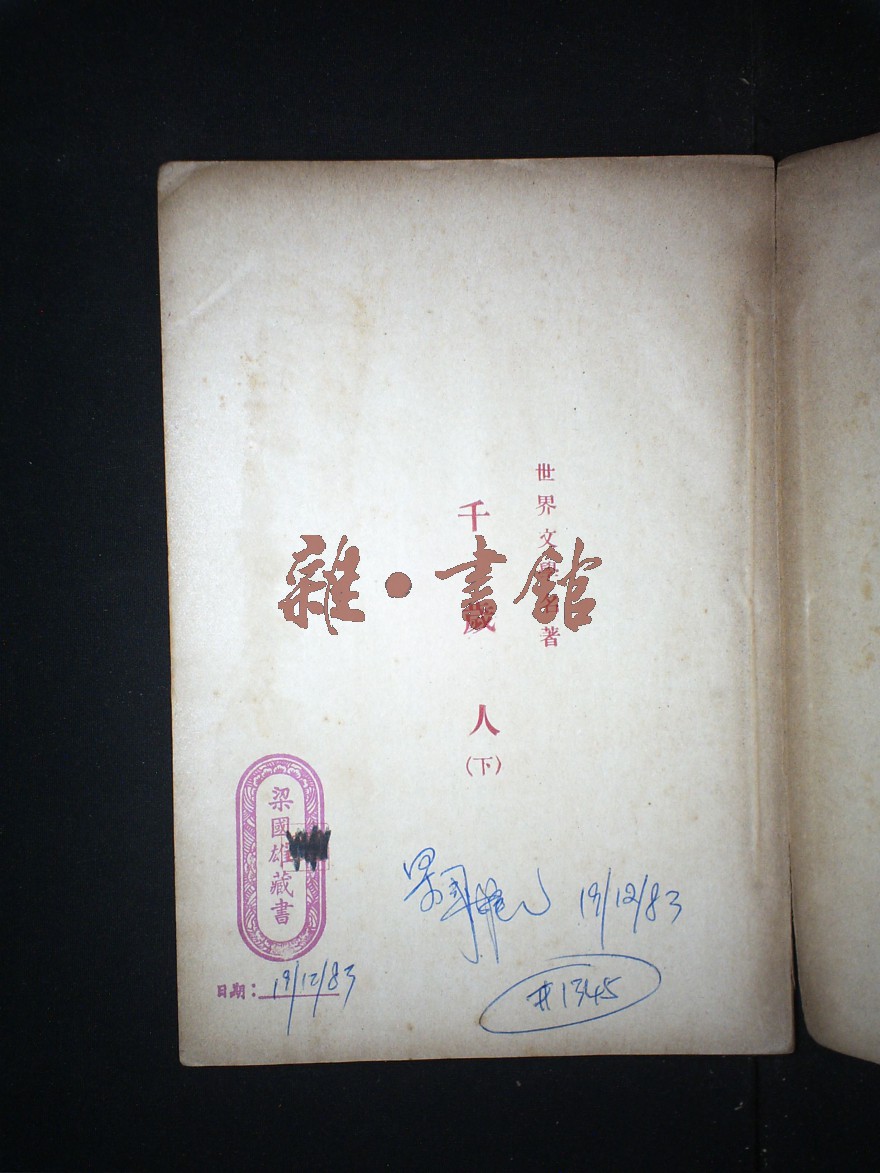 世界文學名著
千歲人
(下)
雜·書館
梁國雄藏書
日期：19/12/83
19/12/83
#1345